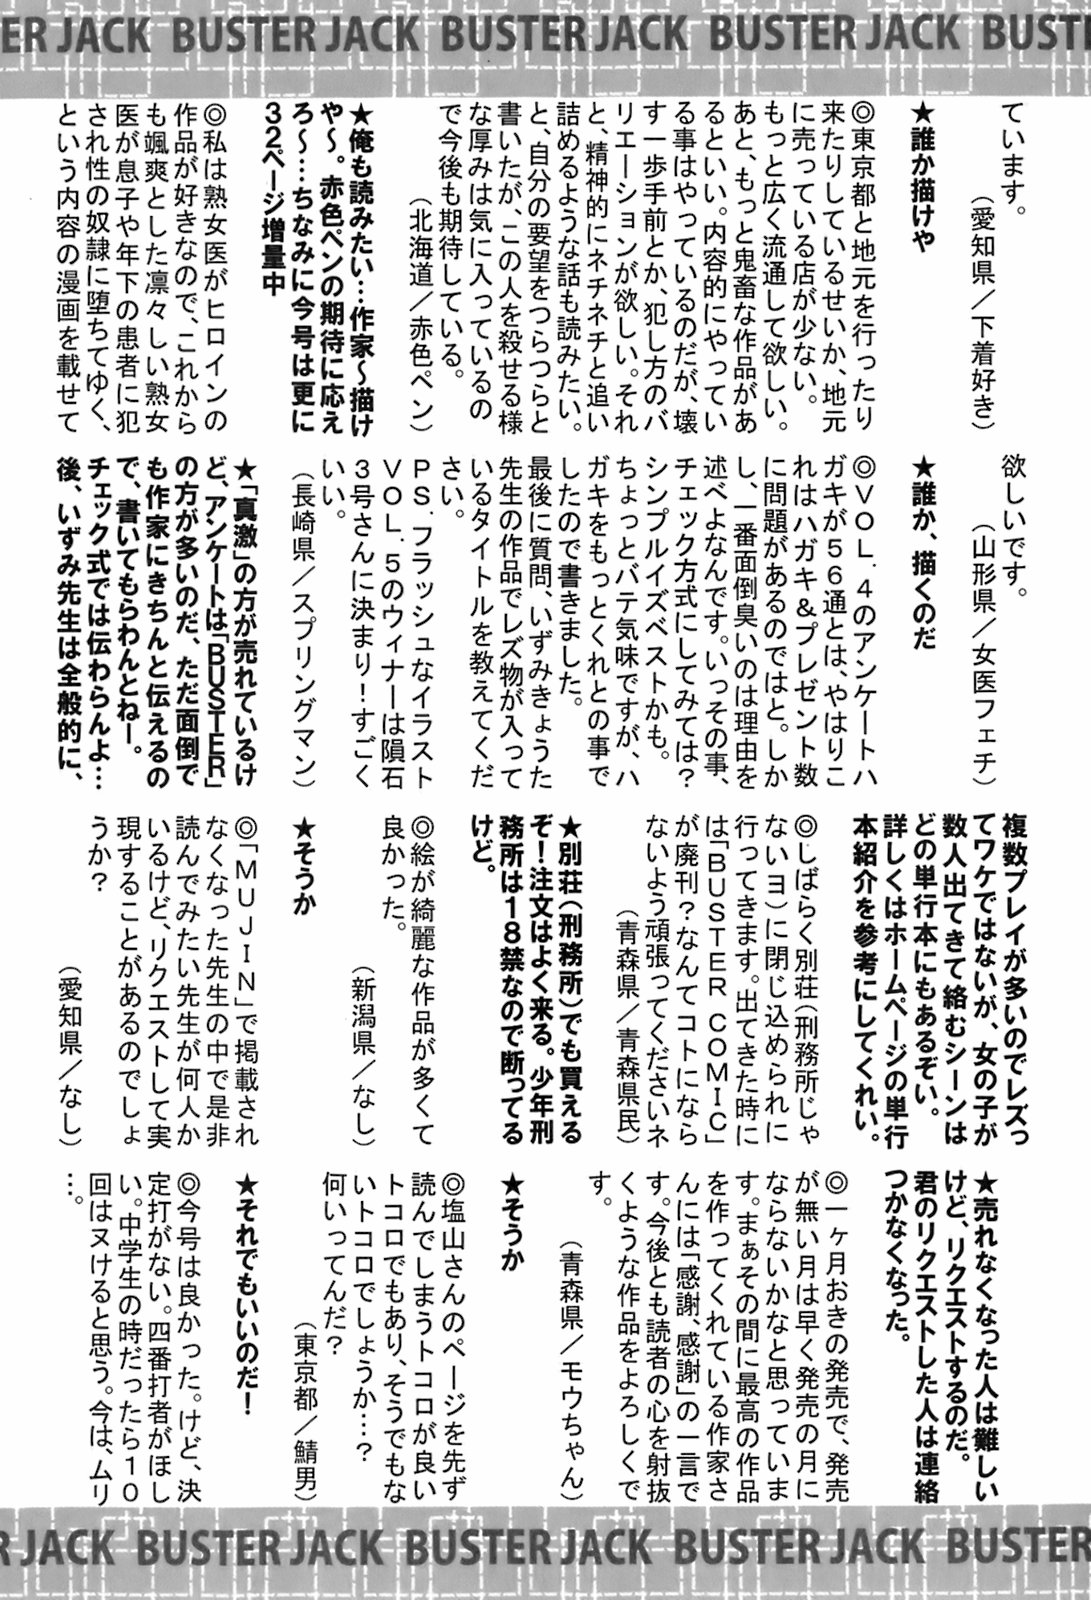 BUSTER JACK BUSTER JACK BUSTER JACK BUSTER JACK BUSTER
ています。
(愛知県/下着好き)
★誰か描けや
◎東京都と地元を行ったり
来たりしているせいか、地元
に売っている店が少ない。
もっと広く流通して欲しい。
あと、もっと鬼畜な作品があ
るといい。内容的にやってい
る事はやっているのだが、壊
す一歩手前とか、犯し方のバ
リエーションが欲しい。それ
と、精神的にネチネチと追い
詰めるような話も読みたい。
と、自分の要望をつらつらと
書いたが、この人を殺せる様
な厚みは気に入っているの
で今後も期待している。
(北海道/赤色ペン)
★俺も読みたい…作家〜描け
や〜。赤色ペンの期待に応え
ろ〜…ちなみに今号は更に
32ページ増量中
◎私は熟女医がヒロインの
作品が好きなので、これから
も颯爽とした凛々しい熟女
医が息子や年下の患者に犯
され性の奴隷に堕ちてゆく、
という内容の漫画を載せて
欲しいです。
(山形県/女医フェチ)
★誰か、描くのだ
◎VOL.4のアンケートハ
ガキが56通とは、やはりこ
れはハガキ&プレゼント数
に問題があるのではと。しか
し、一番面倒臭いのは理由を
述べよなんです。いっその事、
チェック方式にしてみては?
シンプルイズベストかも。
ちょっとバテ気味ですが、ハ
ガキをもっとくれとの事で
したので書きました。
最後に質問、いずみきょうた
先生の作品でレズ物が入って
いるタイトルを教えてくだ
さい。
PS.フラッシュなイラスト
VOL.5のウィナーは隕石
3号さんに決まり!すごく
いい。
(長崎県/スプリングマン)
★「真激」の方が売れているけ
ど、アンケートは「BUSTER」
の方が多いのだ、ただ面倒で
も作家にきちんと伝えるの
で、書いてもらわんとねー。
チェック式では伝わらんよ…
後、いずみ先生は全般的に、
複数プレイが多いのでレズっ
てワケではないが、女の子が
数人出てきて絡むシーンは
どの単行本にもあるぞい。
詳しくはホームページの単行
本紹介を参考にしてくれい。
◎しばらく別荘(刑務所じゃ
ないヨ)に閉じ込められに
行ってきます。出てきた時に
は「BUSTER COMIC」
が廃刊?なんてコトになら
ないよう頑張ってくださいネ
(青森県/青森県民)
★別荘(刑務所)でも買える
ぞ!注文はよく来る。少年刑
務所は18禁なので断ってる
けど。
◎絵が綺麗な作品が多くて
良かった。
(新潟県/なし)
★そうか
◎「MUJIN」で掲載され
なくなった先生の中で是非
読んでみたい先生が何人か
いるけど、リクエストして実
現することがあるのでしょ
うか?
(愛知県/なし)
★売れなくなった人は難しい
けど、リクエストするのだ。
君のリクエストした人は連絡
つかなくなった。
◎一ヶ月おきの発売で、発売
が無い月は早く発売の月に
ならないかなと思っていま
す。まぁその間に最高の作品
を作ってくれている作家さ
んには「感謝、感謝」の一言で
す。今後とも読者の心を射抜
くような作品をよろしくで
す。
(青森県/モウちゃん)
★そうか
◎塩山さんのページを先ず
読んでしまうトコロが良い
トコロでもあり、そうでもな
いトコロでしょうか…?
何いってんだ?
(東京都/鯖男)
★それでもいいのだ!
◎今号は良かった。けど、決
定打がない。四番打者がほし
い。中学生の時だったら10
回はヌけると思う。今は、ムリ
…。
R JACK BUSTER JACK BUSTER JACK BUSTER JACK BUSTER